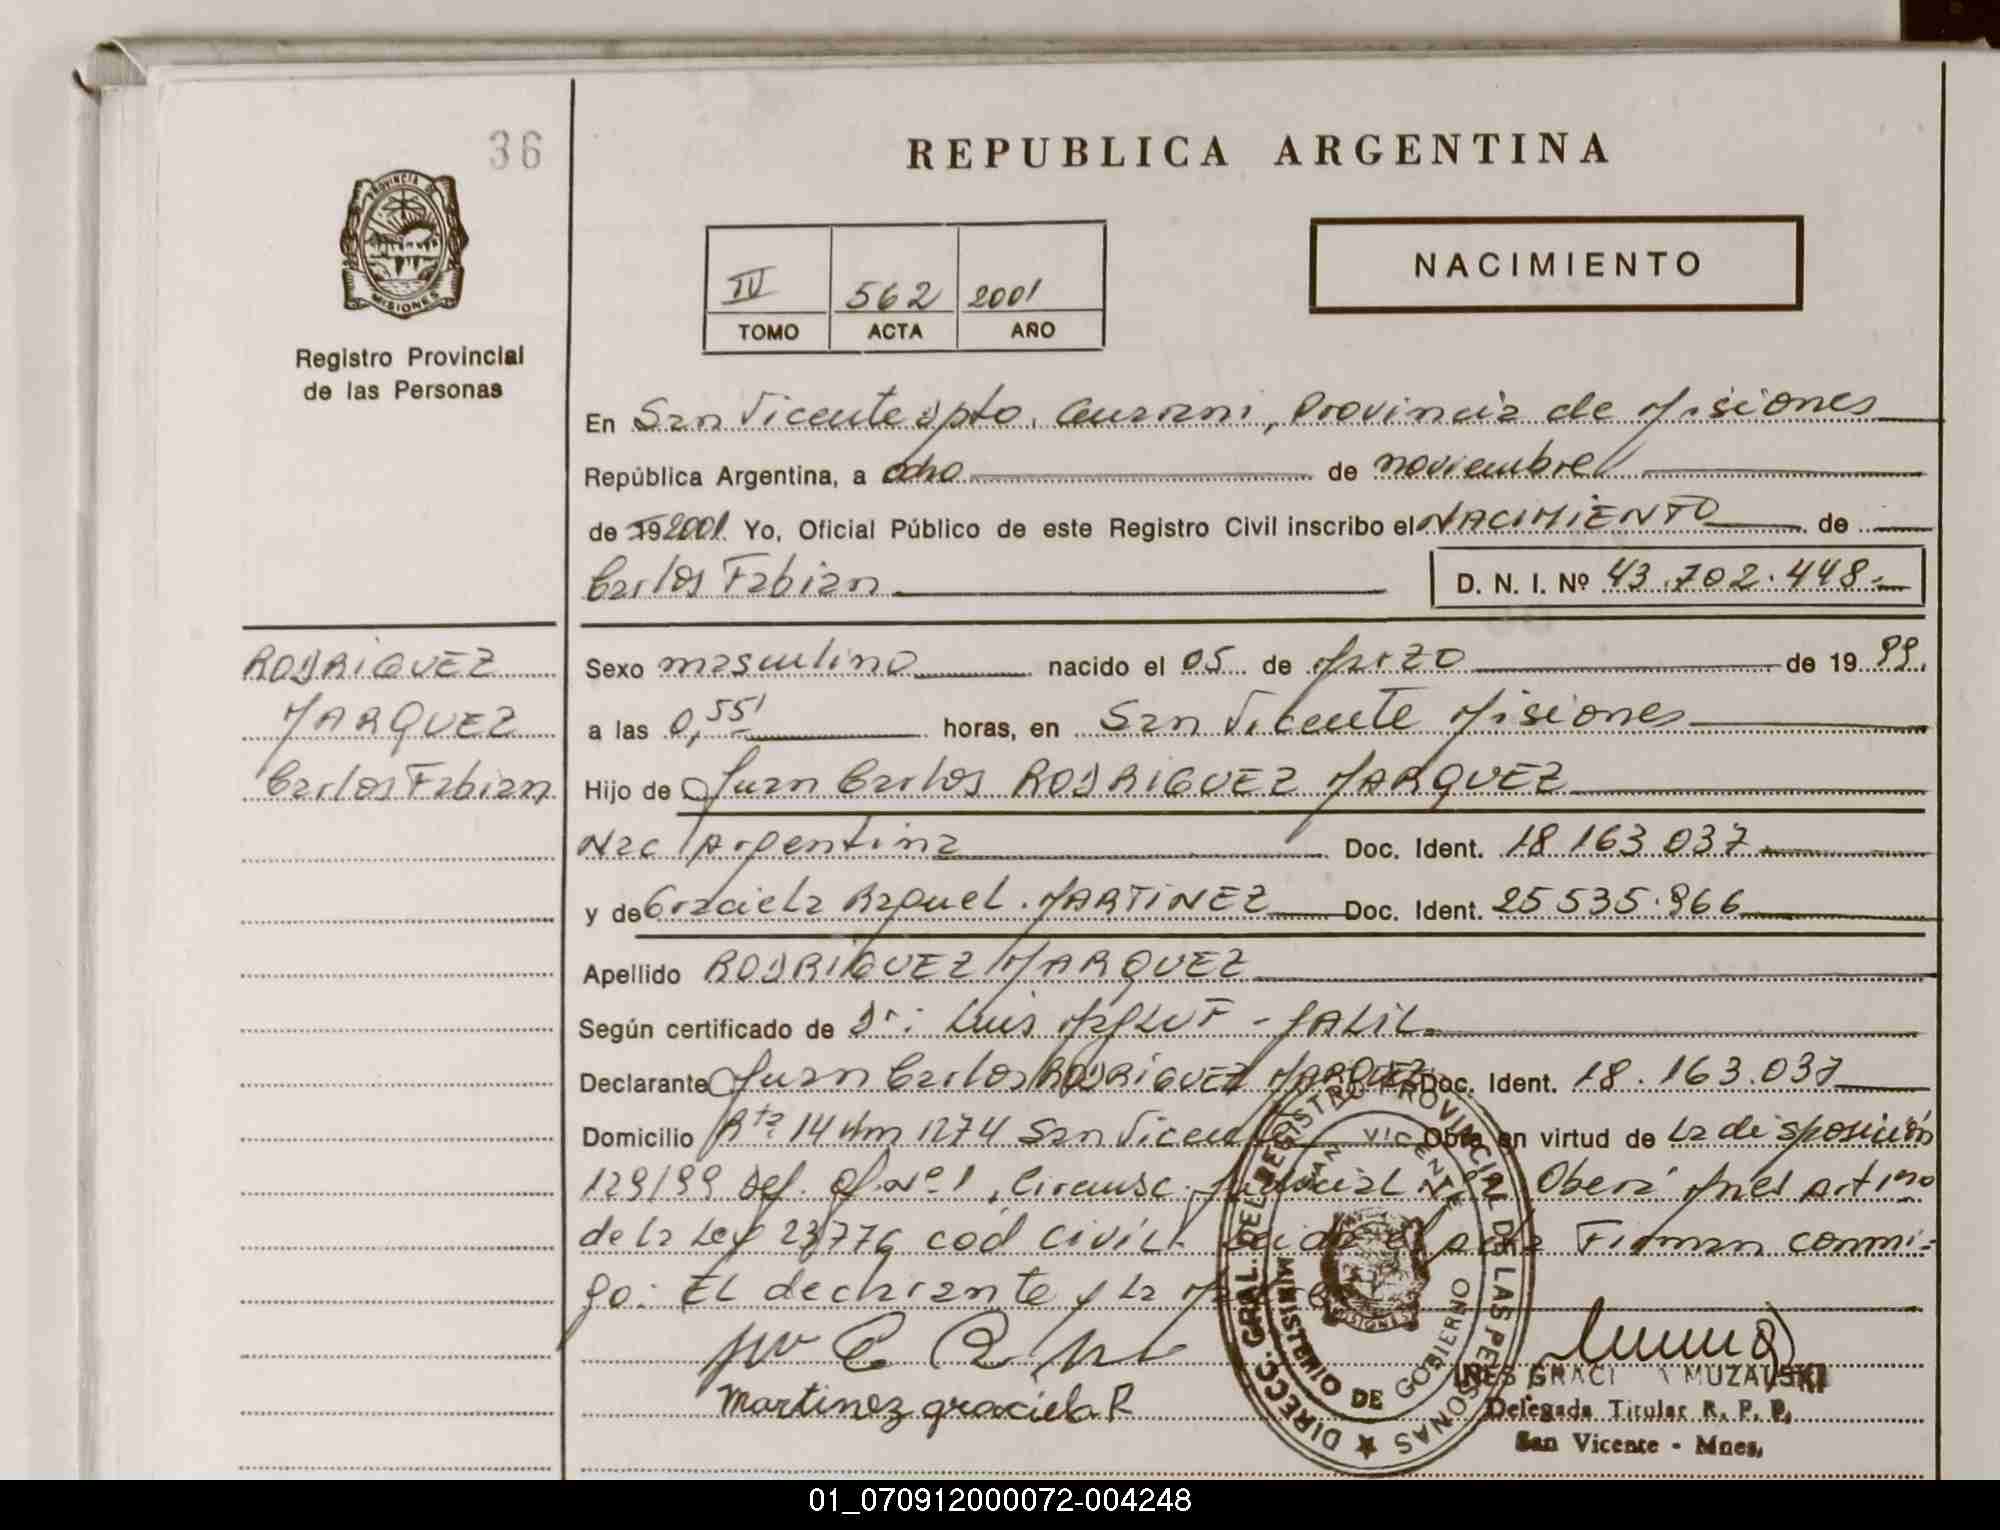 36
REPUBLICA ARGENTINA
PROVINCIA DE
MISIONES
Registro Provincial
de las Personas
IV 562 2001
TOMO ACTA AÑO
NACIMIENTO
En San Vicente dpto. Guarani, Provincia de Misiones
República Argentina, a ocho de noviembre
de 19 2001 Yo, Oficial Público de este Registro Civil inscribo el NACIMIENTO de
Carlos Fabian D. N. I. Nº 43.702.448.-
RODRIGUEZ
MARQUEZ
Carlos Fabian
Sexo masculino nacido el 05 de Marzo de 1999.
a las 0,55' horas, en San Vicente Misiones
Hijo de Juan Carlos RODRIGUEZ MARQUEZ
Nac Argentina Doc. Ident. 18 163 037
y de Graciela Raquel MARTINEZ Doc. Ident. 25 535.966
Apellido RODRIGUEZ MARQUEZ
Según certificado de Dr: Luis - JALIL
Declarante Juan Carlos RODRIGUEZ MARQUEZ Doc. Ident. 18.163.037
Domicilio Rta 14 Km 1274 San Vicente Obra en virtud de La disposición
129/99 Def. Of. Nº 1, Circunsc. Judicial Oberá Mnes Art 1ro
de la Ley 23776 cod Civil Leida el acta Firman conmi-
go: El declarante y La Madre
Martinez graciela R
DIRECC. GRAL. DEL REGISTRO PROVINCIAL DE LAS PERSONAS
SAN VICENTE
MINISTERIO DE GOBIERNO
MISIONES
INES GRACI A MUZALSKI
Delegada Titular R. P. P.
San Vicente - Mnes.
01_070912000072-004248